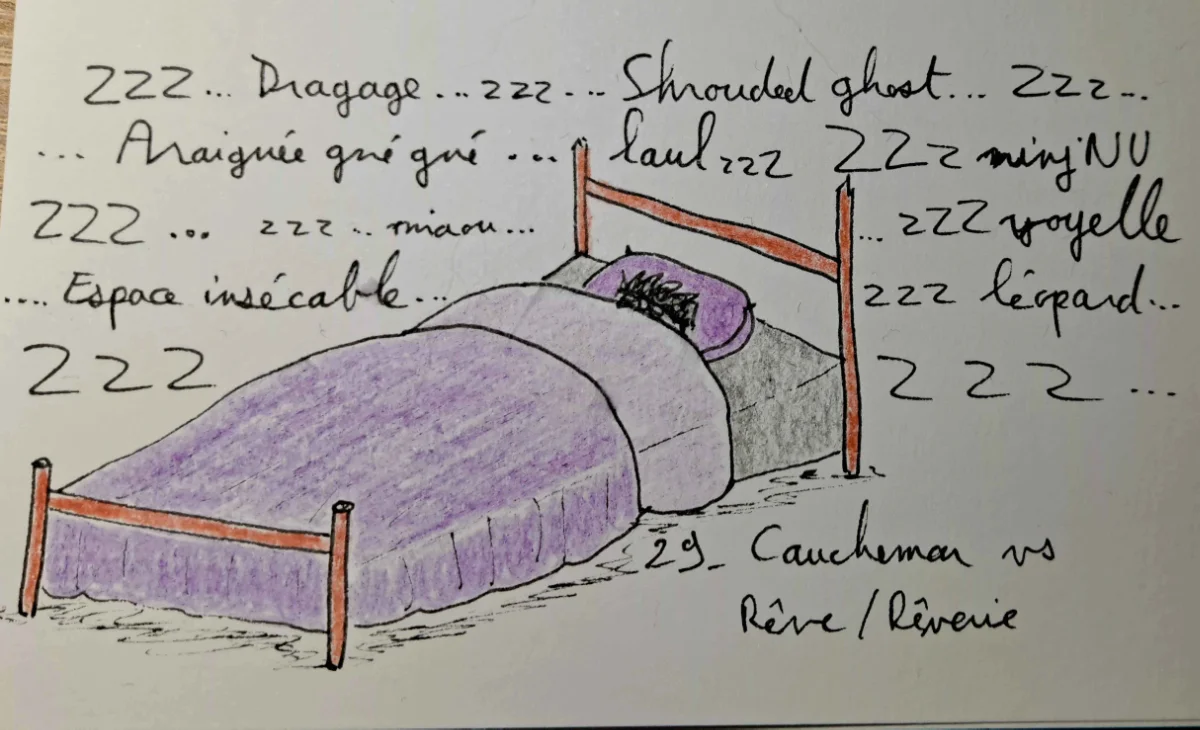 ZZZ... Dragage... zzz... Shrouded ghost... ZZz...
... Araignée gné gné .... laul zzz ZZz minj NU
ZZZ ... zzz .. miaou... ... zzz voyelle
.... Espace insécable... zzz léopard...
ZZZ Z Z Z ...
29_ Cauchemar vs
Rêve / Rêverie